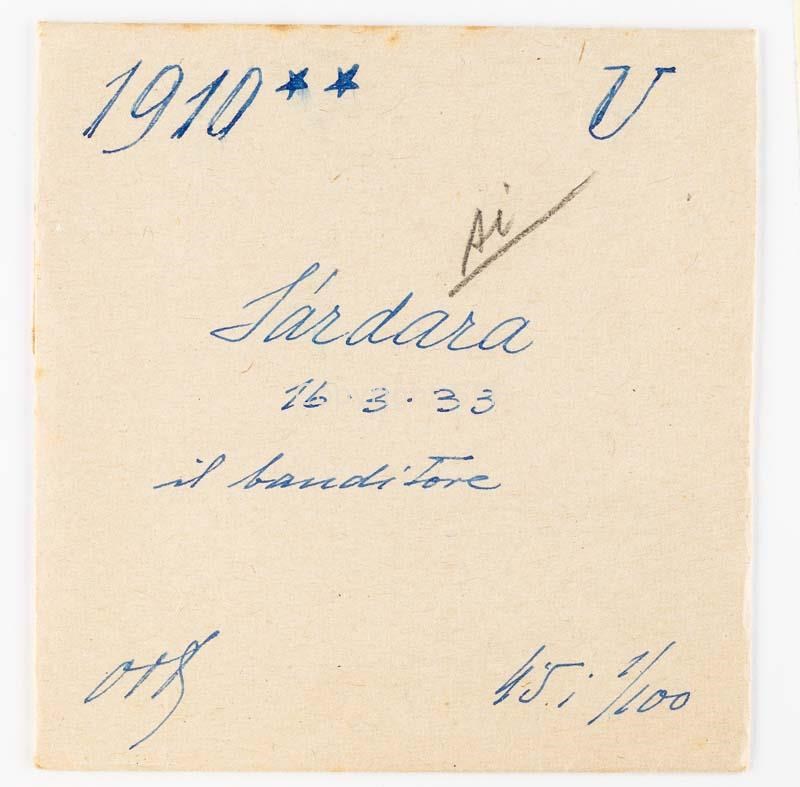 1910** U
Ai
Sárdara
16·3·33
il banditore
1/100